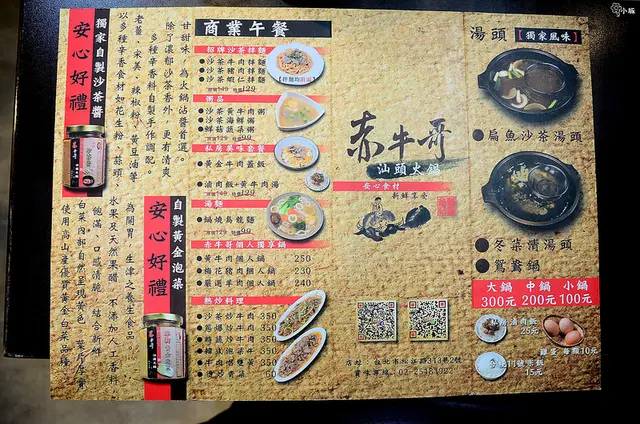 小豚
湯頭【獨家風味】
扁魚沙茶湯頭
冬菜清湯頭
鴛鴦鍋
大鍋 中鍋 小鍋
300元 200元 100元
滷肉飯
25元
雞蛋 每顆10元
15元
赤牛哥
汕頭火鍋
安心食材
新鮮享受
店址：台北市松江路313巷2號
02-25481922
商業午餐
招牌沙茶拌麵
沙茶牛肉拌麵
沙茶豬肉拌麵
沙茶蝦仁拌麵
129
粥品
沙茶牛肉粥
沙茶海鮮粥
鮮菇蔬菜粥
私房美味套餐
黃金牛肉蓋飯
滷肉飯+黃牛肉湯
湯麵
鍋燒烏龍麵
赤牛哥個人獨享鍋
黃牛肉個人鍋 250
梅花豬肉個人鍋 230
嚴選羊肉個人鍋 240
熱炒料理
沙茶炒牛肉 350
蔥爆炒牛肉 350
350
350
350
獨家自製沙茶醬
安心好禮
甘甜味，為火鍋沾醬首選。
除了濃郁沙茶香外，更有清爽
多種辛香料自製手作調配。
老薑、宋美、辣椒粉、黃豆油等
以多種辛香食材如花生粉、蒜頭、
自製黃金泡菜
安心好禮
為開胃、生津之養生食品。
水果及天然果醋，不添加人工香料，
飽滿，口感清脆，結合新鮮
白菜內部自然呈現黃色，葉片厚實
使用高山產優質黃金白菜品種，